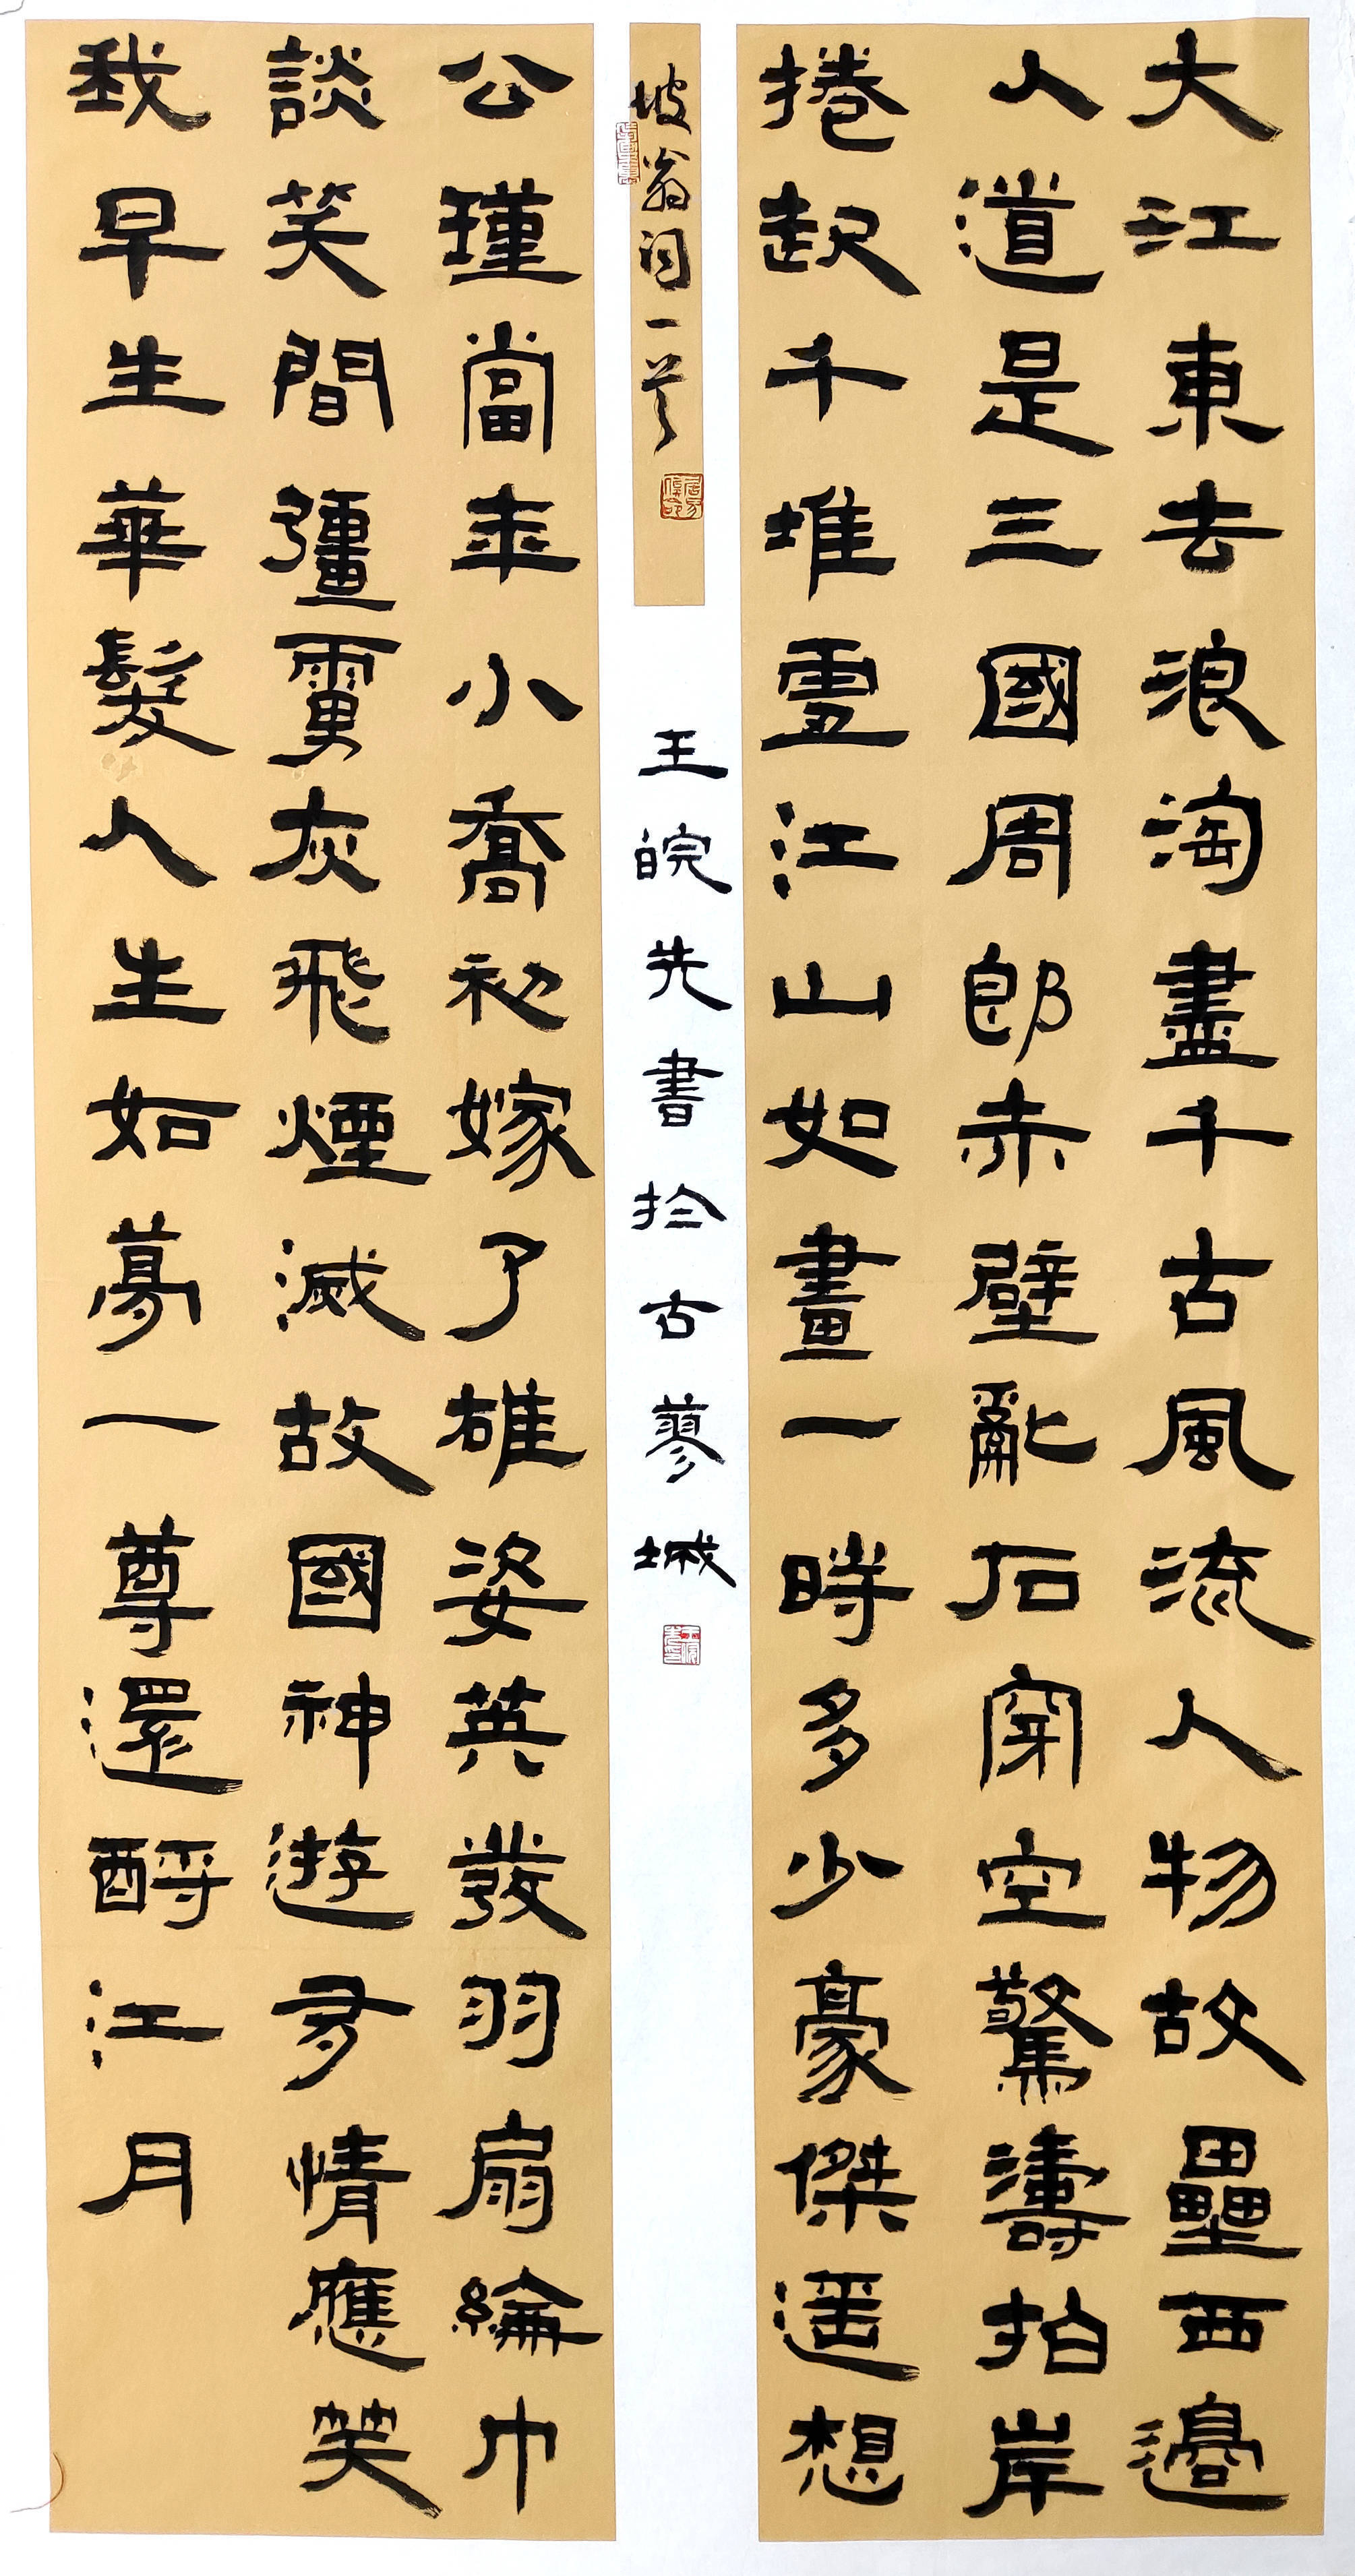 大江東去浪淘盡千古風流人物故壘西邊
人道是三國周郎赤壁亂石穿空驚濤拍岸
捲起千堆雪江山如畫一時多少豪傑遥想
公瑾當年小喬初嫁了雄姿英發羽扇綸巾
談笑間彊虜灰飛煙滅故國神遊多情應笑
我早生華髮人生如夢一尊還酹江月
坡翁詞一首
王皖先書於古蓼城